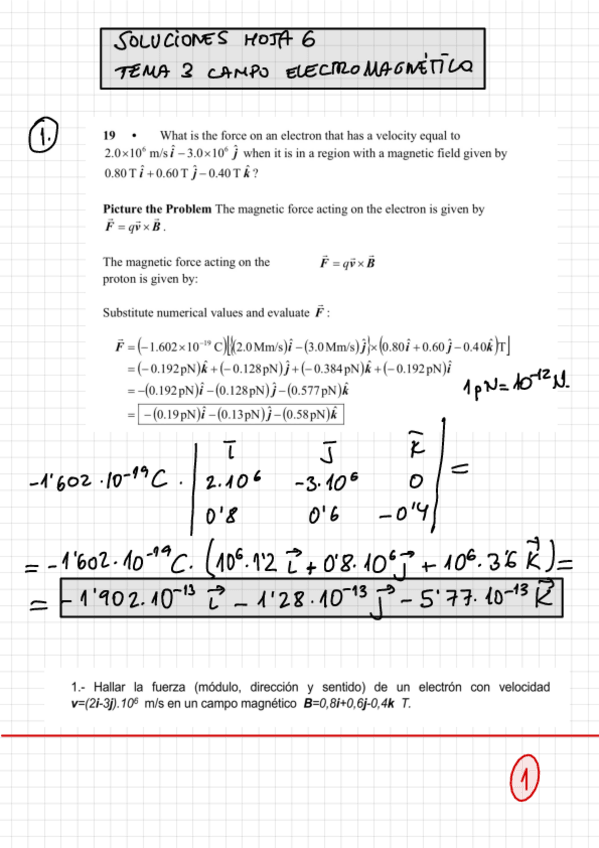 SOLUCIONES HOJA 6
TEMA 3 CAMPO ELECTROMAGNÉTICO
1.
19 • What is the force on an electron that has a velocity equal to
2.0×10⁶ m/s î − 3.0×10⁶ ĵ when it is in a region with a magnetic field given by
0.80 T î + 0.60 T ĵ − 0.40 T k̂ ?
Picture the Problem The magnetic force acting on the electron is given by
F⃗ = qv⃗ × B⃗ .
The magnetic force acting on the F⃗ = qv⃗ × B⃗
proton is given by:
Substitute numerical values and evaluate F⃗ :
F⃗ = (−1.602×10⁻¹⁹ C)[{(2.0 Mm/s)î − (3.0 Mm/s)ĵ}×(0.80î + 0.60ĵ − 0.40k̂)T]
= (−0.192 pN)k̂ + (−0.128 pN)ĵ + (−0.384 pN)k̂ + (−0.192 pN)î
= −(0.192 pN)î − (0.128 pN)ĵ − (0.577 pN)k̂
1pN=10⁻¹² N.
= −(0.19 pN)î − (0.13 pN)ĵ − (0.58 pN)k̂
i j k
-1'602·10⁻¹⁹C · | 2·10⁶ -3·10⁶ 0 | =
0'8 0'6 -0'4
= -1'602·10⁻¹⁹C·(10⁶·1'2 i⃗ + 0'8·10⁶ j⃗ + 10⁶·3'6 k⃗) =
= -1'902·10⁻¹³ i⃗ - 1'28·10⁻¹³ j⃗ - 5'77·10⁻¹³ k⃗
1.- Hallar la fuerza (módulo, dirección y sentido) de un electrón con velocidad
v=(2i-3j).10⁶ m/s en un campo magnético B=0,8i+0,6j-0,4k T.
1